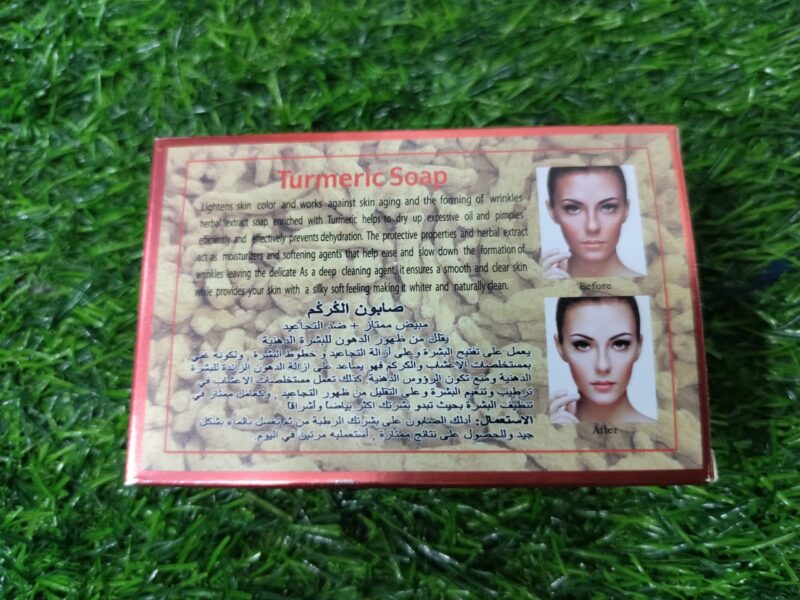 Turmeric Soap
Lightens skin color and works against skin aging and the forming of wrinkles
herbal extract soap enriched with Turmeric helps to dry up excessive oil and pimples
efficiently and effectively prevents dehydration. The protective properties and herbal extract
act as moisturizers and softening agents that help ease and slow down the formation of
wrinkles leaving the delicate As a deep cleaning agent, it ensures a smooth and clear skin
while provides your skin with a silky soft feeling making it whiter and naturally clean.
صابون الكُركُم
مبيض ممتاز + ضد التجاعيد
يقلل من ظهور الدهون للبشرة الدهنية
يعمل على تفتيح البشرة وعلى أزالة التجاعيد و خطوط البشرة , ولكونه غني
بمستخلصات الاعشاب والكركم فهو يساعد على ازالة الدهون الزائدة للبشرة
الدهنية ومنع تكون الرؤوس الدهنية, كذلك تعمل مستخلصات الاعشاب في
ترطيب وتنعيم البشرة و على التقليل من ظهور التجاعيد , وكعامل ممتاز في
تنظيف البشرة بحيث تبدو بشرتك اكثر بياضا وأشراقا
الاستعمال: أدلك الصابون على بشرتك الرطبة من ثم تغسل بالماء بشكل
جيد وللحصول على نتائج ممتازة , أستعمليه مرتين في اليوم.
Before
After